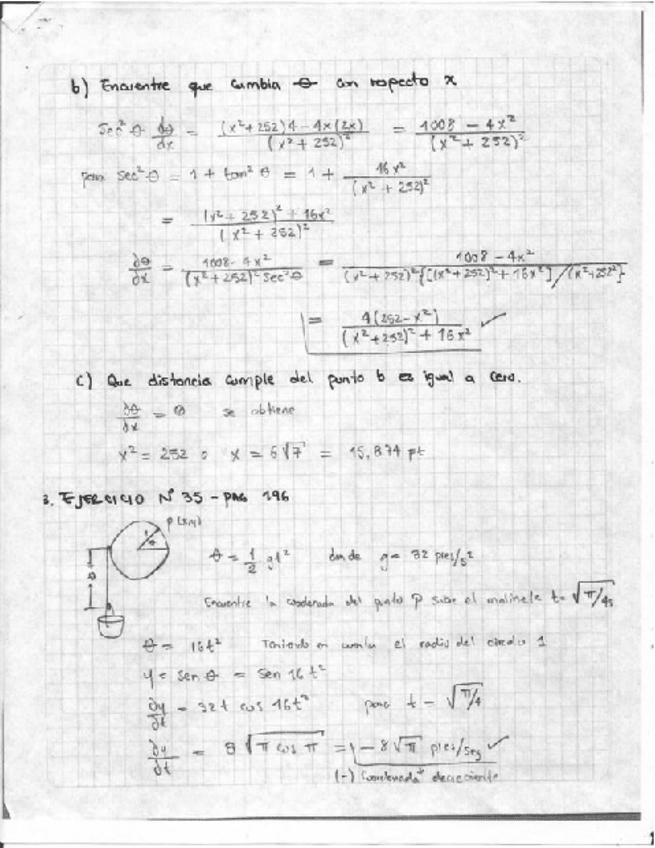 b) Encuentre que cambia θ con respecto x
Sec² θ dθ/dx = (x²+252)4 - 4x(2x) / (x²+252)² = 1008 - 4x² / (x²+252)²
para Sec² θ = 1 + tan² θ = 1 + 16x² / (x²+252)²
= (x²+252)² + 16x² / (x²+252)²
dθ/dx = 1008 - 4x² / (x²+252)² Sec² θ = 1008 - 4x² / (x²+252)² {[(x²+252)² + 16x²] / (x²+252)²}
= 4(252 - x²) / (x²+252)² + 16x² ✓
c) Que distancia cumple del punto b es igual a cero.
dθ/dx = 0 se obtiene
x² = 252 o x = 6√7 = 15,874 pt
3. EJERCICIO Nº 35 - PAG 196
P(x,y)
1 θ
θ = 1/2 gt² donde g = 32 pies/s²
Encuentre la coordenada del punto P sobre el malinete t = √π/4s
θ = 16t² Teniendo en cuenta el radio del circulo 1
y = Sen θ = Sen 16t²
dy/dt = 32t cos 16t² para t = √π/4
dy/dt = 8√π cos π = -8√π pies/seg ✓
(-) Coordenada decreciente